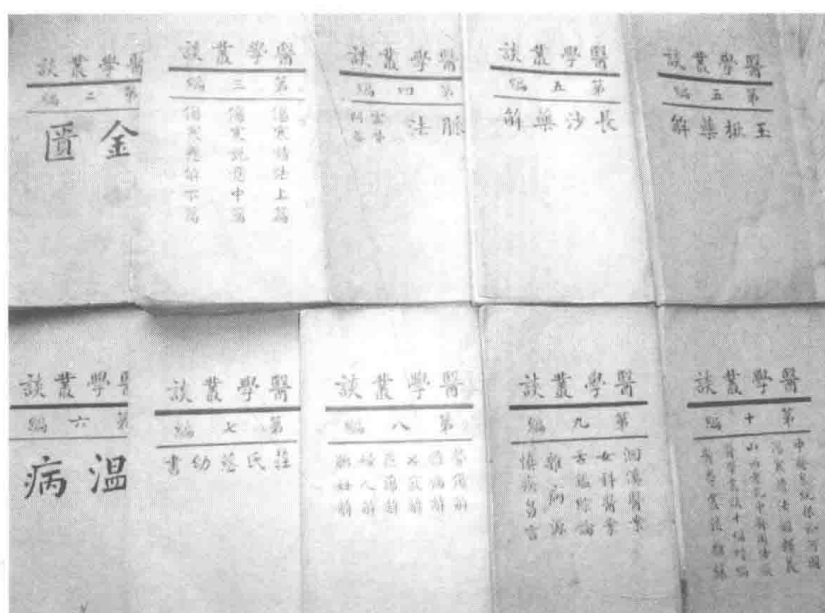 醫學叢談
第二編
金匱
醫學叢談
第三編
傷寒讀法上篇
傷寒說意中篇
傷寒懸解下篇
醫學叢談
第四編
脈法
醫學叢談
第五編
長沙藥解
醫學叢談
第五編
玉楸藥解
醫學叢談
第六編
溫病
醫學叢談
第七編
莊氏慈幼書
醫學叢談
第八編
七竅解
婦人解
胎妊解
醫學叢談
第九編
洄溪醫案
女科醫案
舌鑑總論
雜病源
慎疾芻言
醫學叢談
第十編
中醫系統根於河圖
醫學叢談雜錄